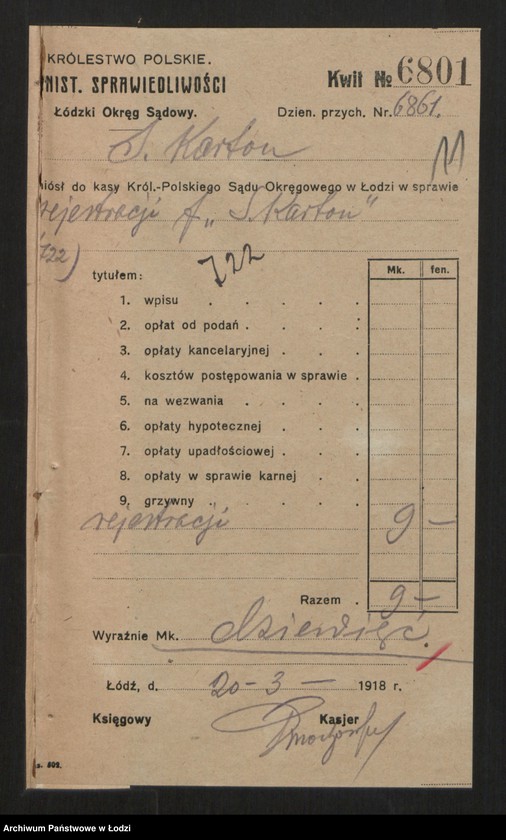 KRÓLESTWO POLSKIE.
NIST. SPRAWIEDLIWOŚCI
Kwit № 6801
Łódzki Okręg Sądowy.
Dzien. przych. Nr. 6861.
S. Karton
11
iósł do kasy Król.-Polskiego Sądu Okręgowego w Łodzi w sprawie
rejestracji f „S. Karton"
722)
722
tytułem:
Mk. fen.
1. wpisu
2. opłat od podań
3. opłaty kancelaryjnej
4. kosztów postępowania w sprawie
5. na wezwania
6. opłaty hypotecznej
7. opłaty upadłościowej
8. opłaty w sprawie karnej
9. grzywny
rejestracji 9 —
Razem 9 —
Wyraźnie Mk. dziewięć.
Łódź, d. 20-3 — 1918 r.
Księgowy Kasjer
s. 802.
Archiwum Państwowe w Łodzi